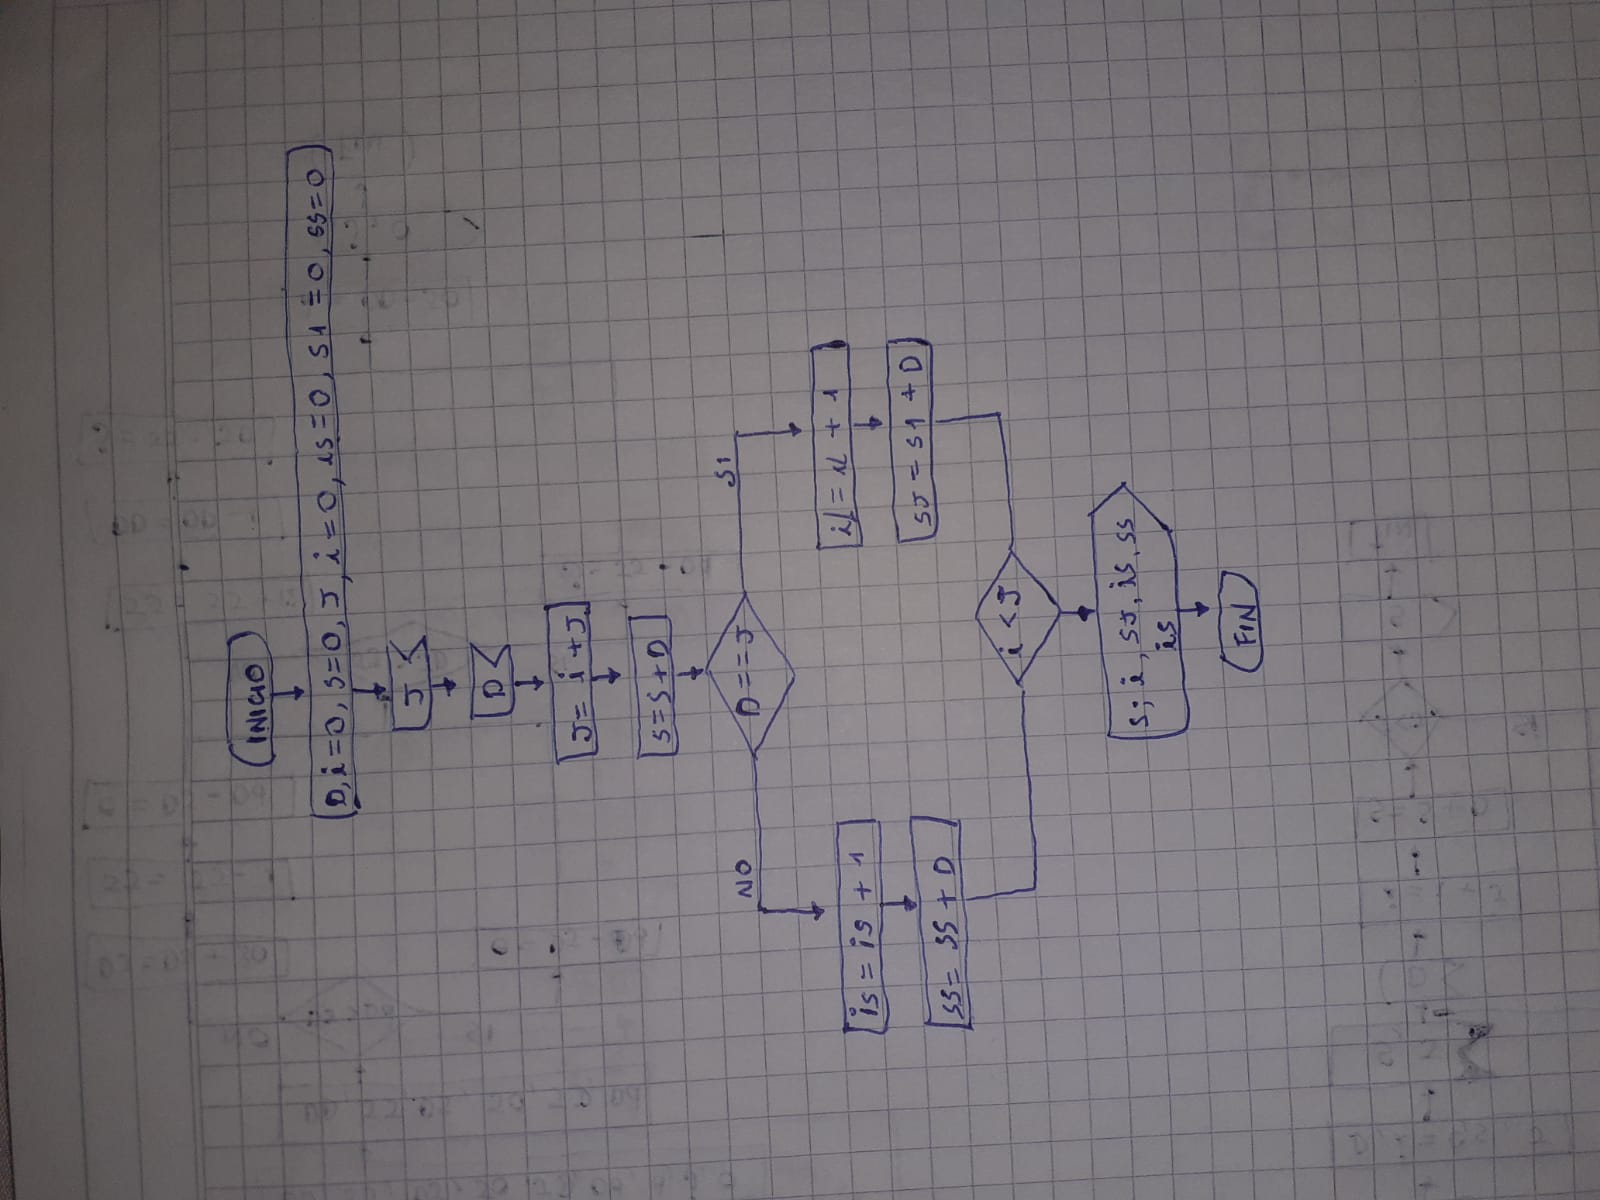 INICIO
D, i=0, S=0, J, i=0, is=0, S1=0, SS=0
J
D
J= i+J
S=S+D
D==J
NO
SI
is = is + 1
SS= SS + D
+ 1
SJ = S1 + D
i < J
S; i, SJ, is, SS
is
FIN